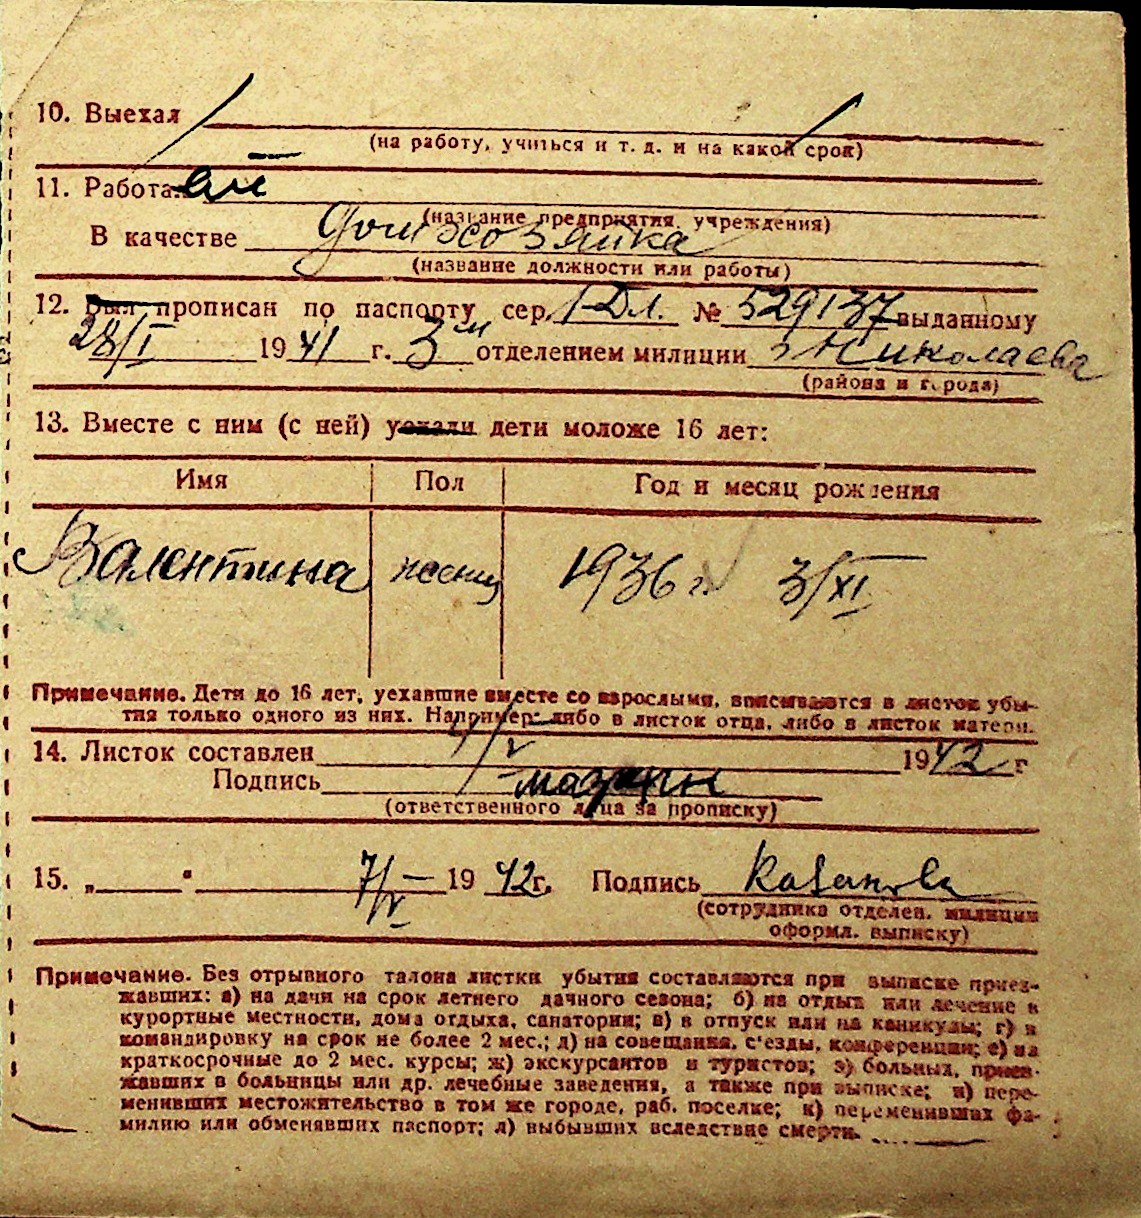 10. Выехал
(на работу, учиться и т. д. и на какой срок)
11. Работа
(название предприятия, учреждения)
В качестве домхозяйка
(название должности или работы)
12. Был прописан по паспорту сер. I-Дл. № 529137 выданному
28/I 1941 г. 3м отделением милиции г Николаева
(района и города)
13. Вместе с ним (с ней) уехали дети моложе 16 лет:
Имя Пол Год и месяц рождения
Валентина женщ 1936 г. 3/XI
Примечание. Дети до 16 лет, уехавшие вместе со взрослыми, вписываются в листок убы-
тия только одного из них. Например: либо в листок отца, либо в листок матери.
14. Листок составлен 1942 г
Подпись
(ответственного лица за прописку)
15. „ " 7/V 1942г. Подпись Казакова
(сотрудника отделен. милиции
оформл. выписку)
Примечание. Без отрывного талона листки убытия составляются при выписке приез-
жавших: а) на дачи на срок летнего дачного сезона; б) на отдых или лечение в
курортные местности, дома отдыха, санатории; в) в отпуск или на каникулы; г) в
командировку на срок не более 2 мес.; д) на совещания, с'езды, конференции; е) на
краткосрочные до 2 мес. курсы; ж) экскурсантов и туристов; з) больных, приез-
жавших в больницы или др. лечебные заведения, а также при выписке; и) пере-
менивших местожительство в том же городе, раб. поселке; к) переменивших фа-
милию или обменявших паспорт; л) выбывших вследствие смерти.